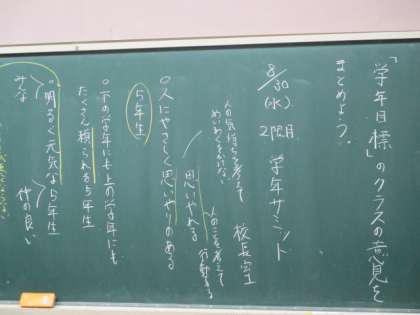 「学年目標」のクラスの意見を
まとめよう。
8/30(水) 2限目 学年サミット
校長室
人の気持ちを考えて
めいわくをかけない
思いやれる
人のことを考えて
行動する
○人にやさしく思いやりのある
5年生
○下の学年にも上の学年にも
たくさん頼られる5年生
○明るく元気な5年生
みんな
仲の良い